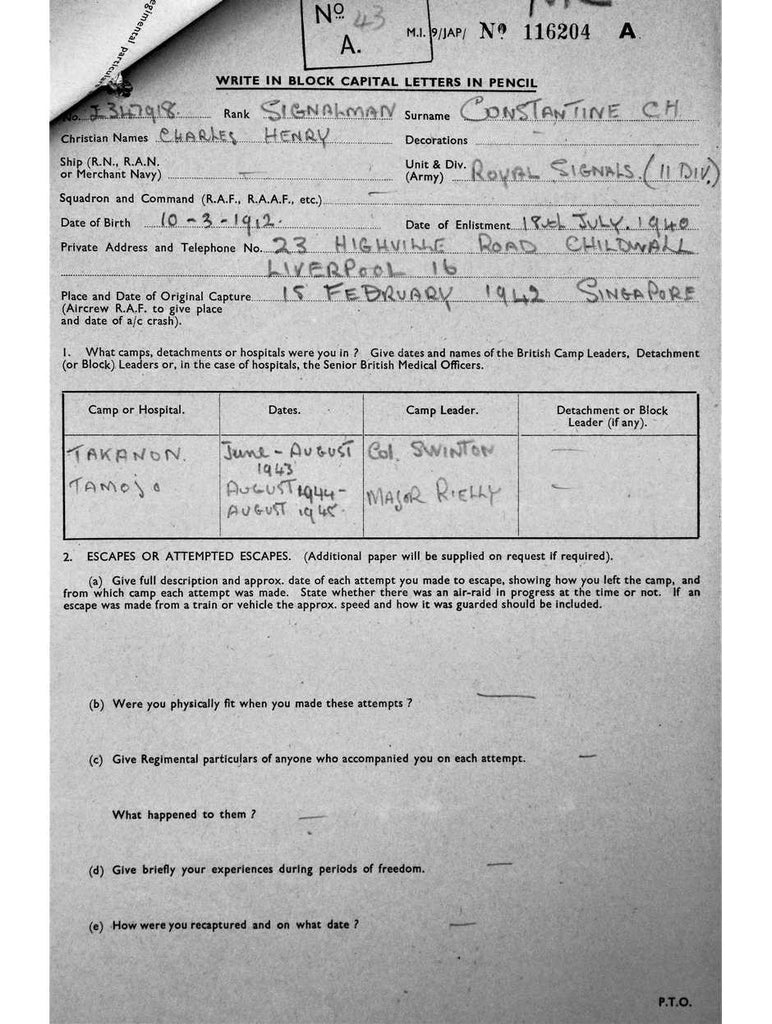 regimental particulars
Nº 43
A.
M.I. 9/JAP/ Nº 116204 A
WRITE IN BLOCK CAPITAL LETTERS IN PENCIL
No. 2347918. Rank SIGNALMAN Surname CONSTANTINE CH
Christian Names CHARLES HENRY Decorations —
Ship (R.N., R.A.N. or Merchant Navy) — Unit & Div. (Army) ROYAL SIGNALS. (11 DIV.)
Squadron and Command (R.A.F., R.A.A.F., etc.) —
Date of Birth 10-3-1912. Date of Enlistment 18th JULY. 1940
Private Address and Telephone No. 23 HIGHVILLE ROAD CHILDWALL
LIVERPOOL 16
Place and Date of Original Capture 15 FEBRUARY 1942 SINGAPORE
(Aircrew R.A.F. to give place
and date of a/c crash).
1. What camps, detachments or hospitals were you in ? Give dates and names of the British Camp Leaders, Detachment
(or Block) Leaders or, in the case of hospitals, the Senior British Medical Officers.
Camp or Hospital. Dates. Camp Leader. Detachment or Block Leader (if any).
TAKANON. June - AUGUST 1943 Col. SWINTON —
TAMOJO AUGUST 1944 - AUGUST 1945. MAJOR RIELLY —
2. ESCAPES OR ATTEMPTED ESCAPES. (Additional paper will be supplied on request if required).
(a) Give full description and approx. date of each attempt you made to escape, showing how you left the camp, and
from which camp each attempt was made. State whether there was an air-raid in progress at the time or not. If an
escape was made from a train or vehicle the approx. speed and how it was guarded should be included.
(b) Were you physically fit when you made these attempts ? —
(c) Give Regimental particulars of anyone who accompanied you on each attempt. —
What happened to them ? —
(d) Give briefly your experiences during periods of freedom. —
(e) How were you recaptured and on what date ? —
P.T.O.